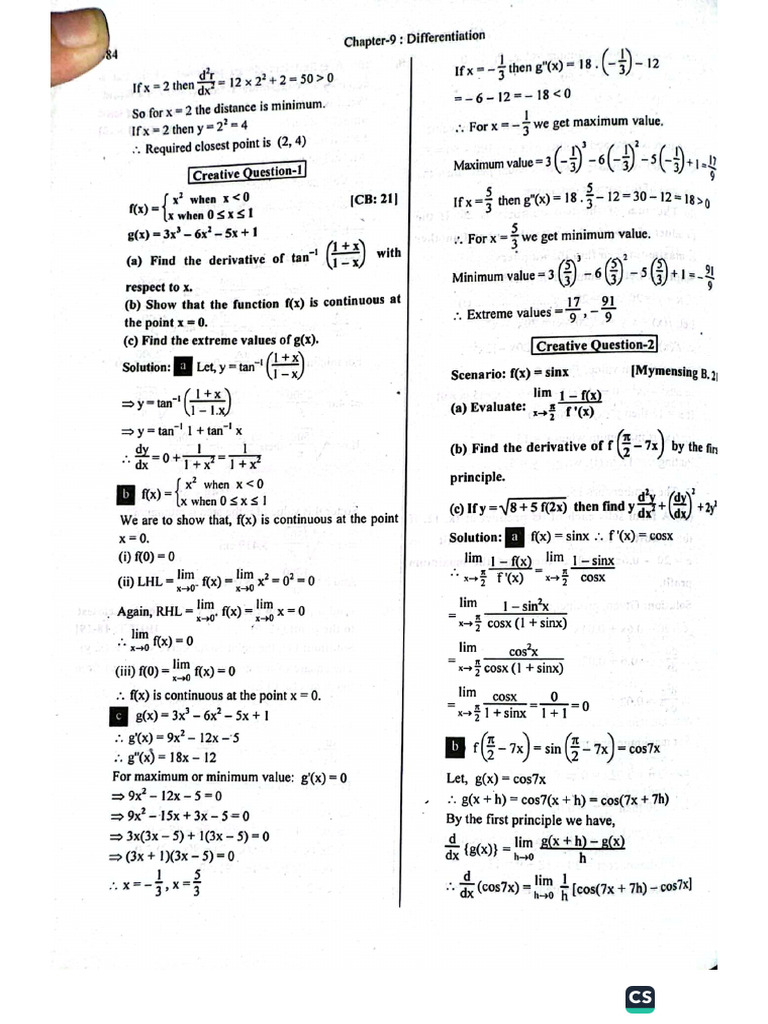 84
Chapter-9 : Differentiation
If x = 2 then d²r/dx² = 12 × 2² + 2 = 50 > 0
So for x = 2 the distance is minimum.
If x = 2 then y = 2² = 4
∴ Required closest point is (2, 4)
Creative Question-1
f(x) = { x² when x < 0 [CB: 21]
x when 0 ≤ x ≤ 1
g(x) = 3x³ – 6x² – 5x + 1
(a) Find the derivative of tan⁻¹ ((1 + x)/(1 – x)) with
respect to x.
(b) Show that the function f(x) is continuous at
the point x = 0.
(c) Find the extreme values of g(x).
Solution: a Let, y = tan⁻¹ ((1 + x)/(1 – x))
⇒ y = tan⁻¹ ((1 + x)/(1 – 1.x))
⇒ y = tan⁻¹ 1 + tan⁻¹ x
∴ dy/dx = 0 + 1/(1 + x²) = 1/(1 + x²)
b f(x) = { x² when x < 0
x when 0 ≤ x ≤ 1
We are to show that, f(x) is continuous at the point
x = 0.
(i) f(0) = 0
(ii) LHL = lim x→0⁻ f(x) = lim x→0 x² = 0² = 0
Again, RHL = lim x→0⁺ f(x) = lim x→0 x = 0
∴ lim x→0 f(x) = 0
(iii) f(0) = lim x→0 f(x) = 0
∴ f(x) is continuous at the point x = 0.
c g(x) = 3x³ – 6x² – 5x + 1
∴ g'(x) = 9x² – 12x – 5
∴ g''(x) = 18x – 12
For maximum or minimum value: g'(x) = 0
⇒ 9x² – 12x – 5 = 0
⇒ 9x² – 15x + 3x – 5 = 0
⇒ 3x(3x – 5) + 1(3x – 5) = 0
⇒ (3x + 1)(3x – 5) = 0
∴ x = – 1/3 , x = 5/3
If x = – 1/3 then g''(x) = 18 . (– 1/3) – 12
= – 6 – 12 = – 18 < 0
∴ For x = – 1/3 we get maximum value.
Maximum value = 3 (– 1/3)³ – 6(– 1/3)² – 5(– 1/3) + 1 = 17/9
If x = 5/3 then g''(x) = 18 . 5/3 – 12 = 30 – 12 = 18 > 0
∴ For x = 5/3 we get minimum value.
Minimum value = 3 (5/3)³ – 6 (5/3)² – 5 (5/3) + 1 = – 91/9
∴ Extreme values = 17/9 , – 91/9
Creative Question-2
Scenario: f(x) = sinx [Mymensing B. 21
(a) Evaluate: lim x→π/2 (1 – f(x))/f '(x)
(b) Find the derivative of f (π/2 – 7x) by the firs
principle.
(c) If y = √(8 + 5 f(2x)) then find y d²y/dx² + (dy/dx)² + 2y²
Solution: a f(x) = sinx ∴ f '(x) = cosx
∴ lim x→π/2 (1 – f(x))/f '(x) = lim x→π/2 (1 – sinx)/cosx
= lim x→π/2 (1 – sin²x)/(cosx (1 + sinx))
= lim x→π/2 cos²x/(cosx (1 + sinx))
= lim x→π/2 cosx/(1 + sinx) = 0/(1 + 1) = 0
b f (π/2 – 7x) = sin (π/2 – 7x) = cos7x
Let, g(x) = cos7x
∴ g(x + h) = cos7(x + h) = cos(7x + 7h)
By the first principle we have,
d/dx {g(x)} = lim h→0 (g(x + h) – g(x))/h
∴ d/dx (cos7x) = lim h→0 1/h [cos(7x + 7h) – cos7x]
CS